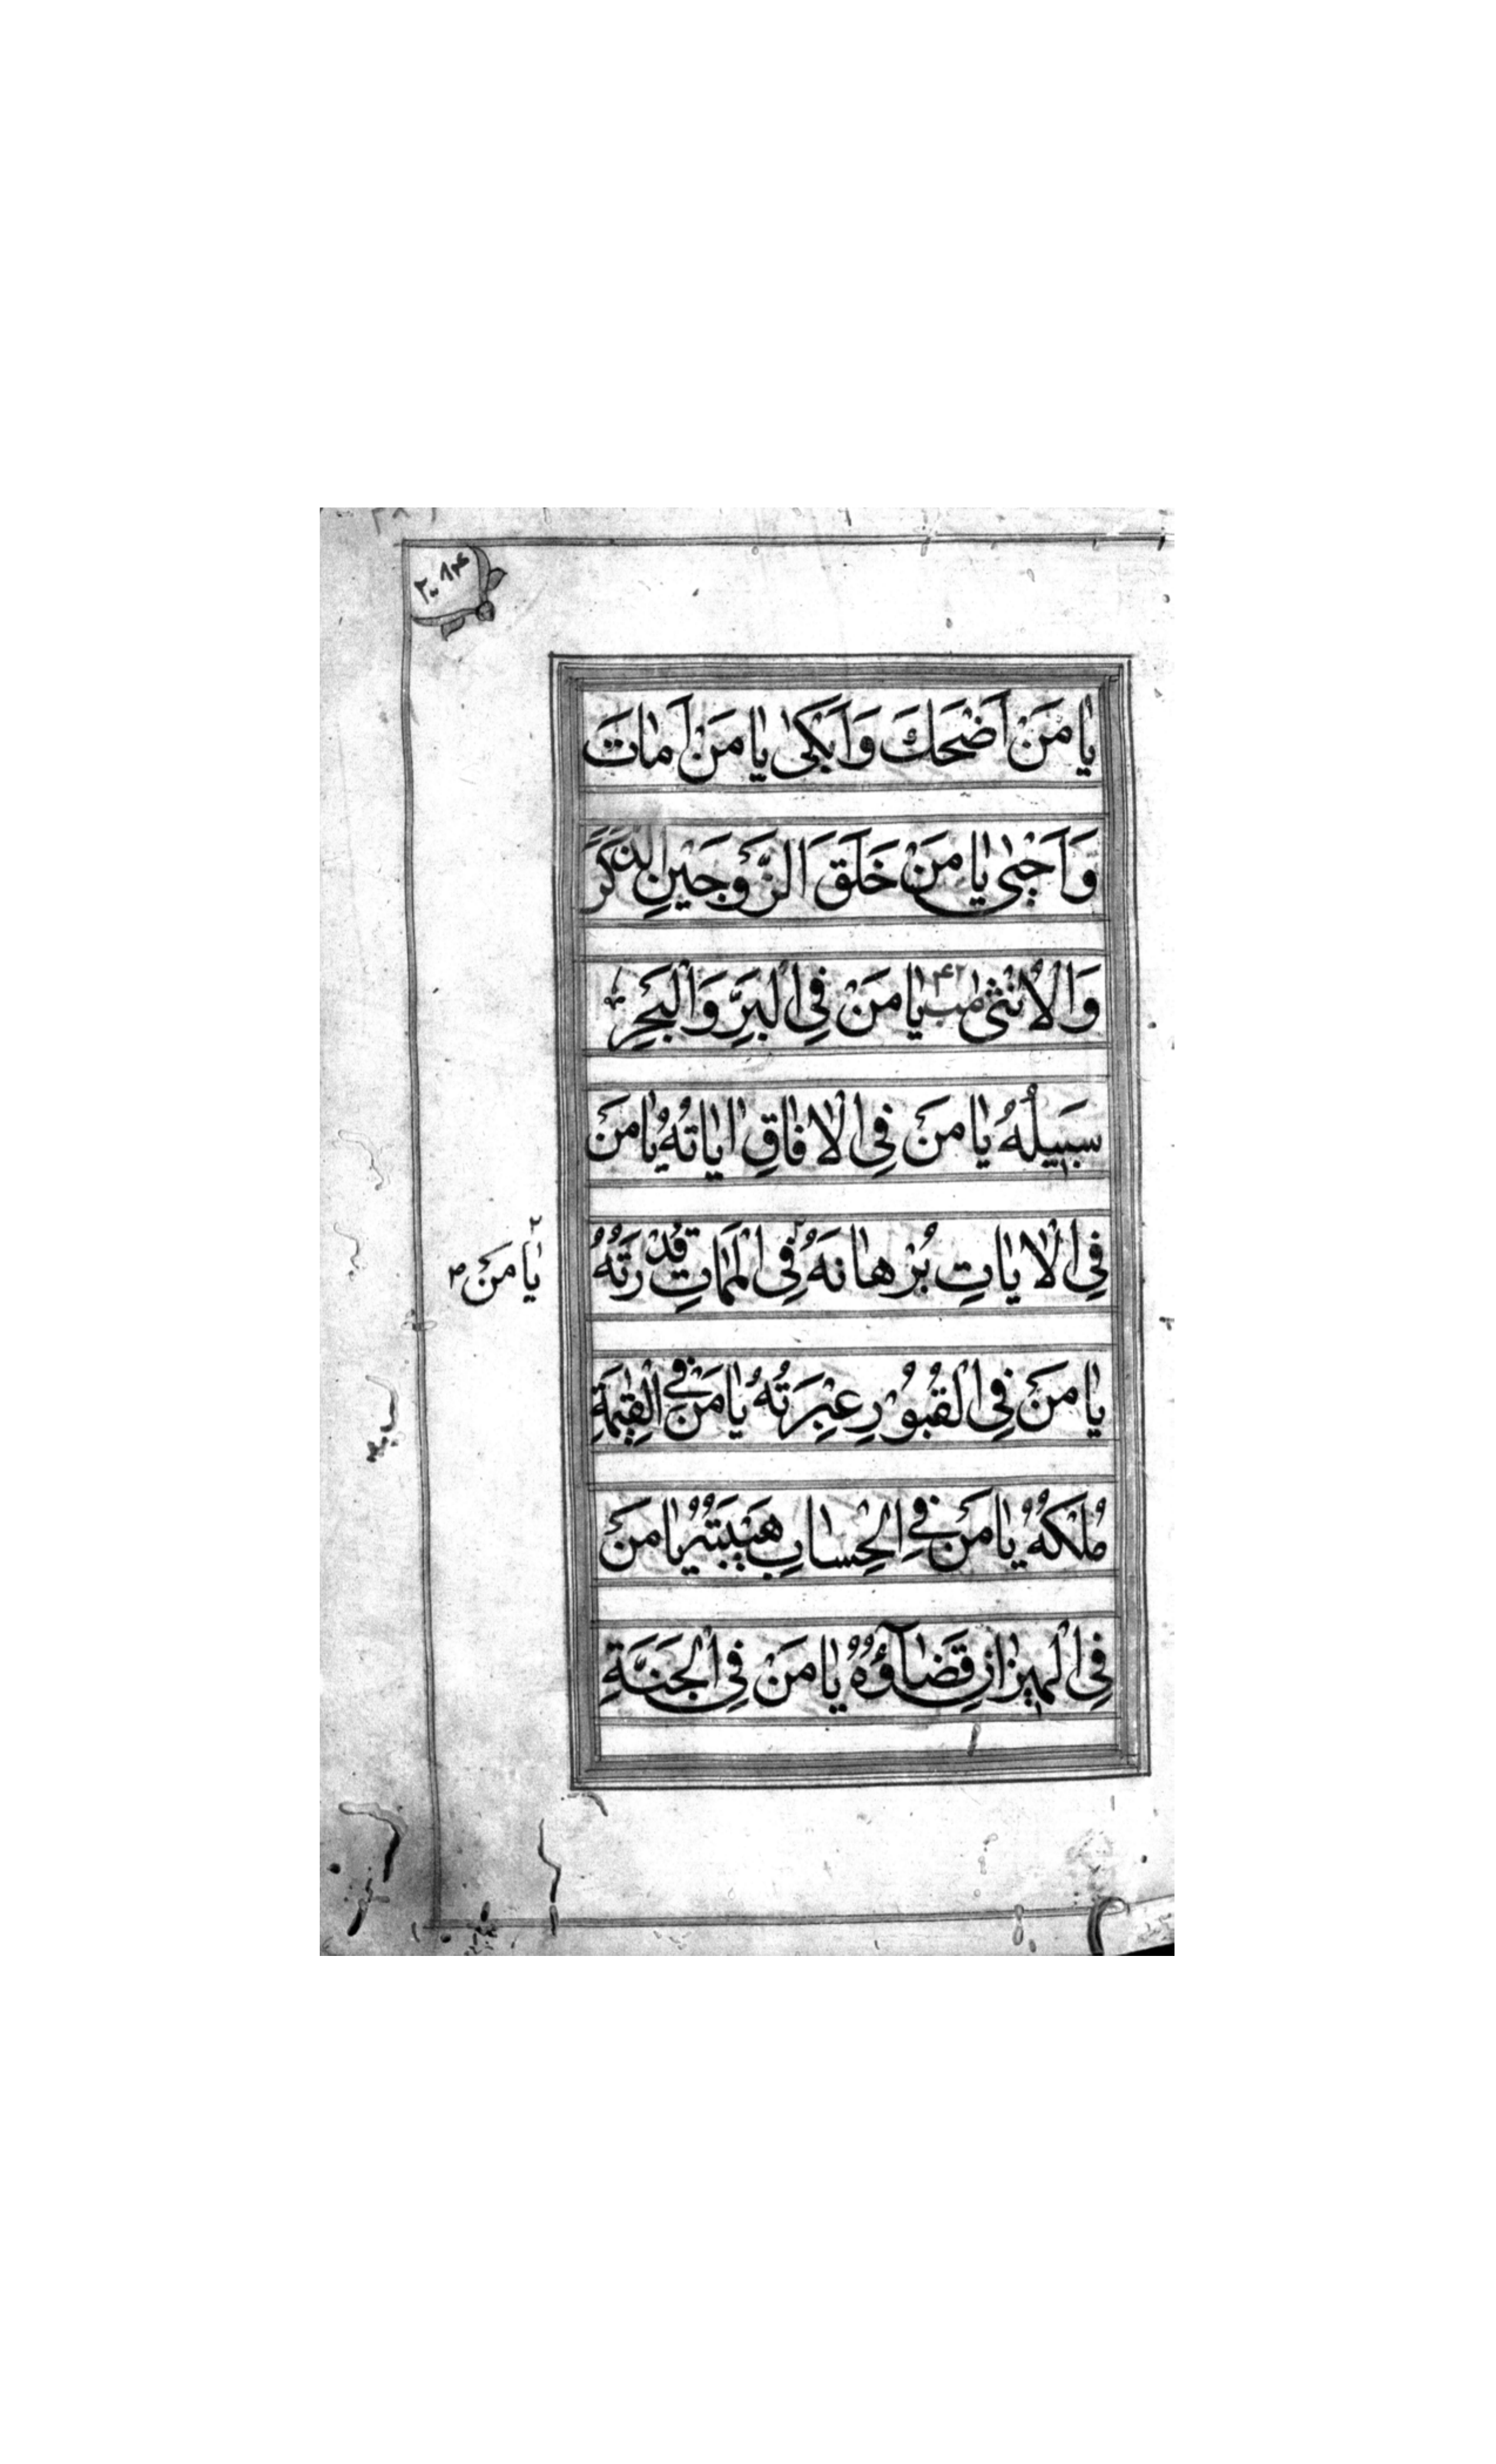 يا مَنْ اَضْحَكَ وَاَبْكىٰ يا مَنْ اَماتَ
وَاَحْيٰى يا مَنْ خَلَقَ الزَّوْجَيْنِ الذَّكَرَ
وَالْاُنْثىٰ مب ۴۲ يا مَنْ فِى الْبَرِّ وَالْبَحْرِ
سَبيلُهُ يا مَنْ فِى الْافاقِ اياتُهُ يا مَنْ
فِى الْاياتِ بُرْهانُهُ فِى الْمَماتِ قُدْرَتُهُ
يا مَنْ
يا مَنْ فِى الْقُبُورِ عِبْرَتُهُ يا مَنْ فِى الْقِيٰمَةِ
مُلْكُهُ يا مَنْ فِى الْحِسابِ هَيْبَتُهُ يا مَنْ
فِى الْميزانِ قَضآؤُهُ يا مَنْ فِى الْجَنَّةِ